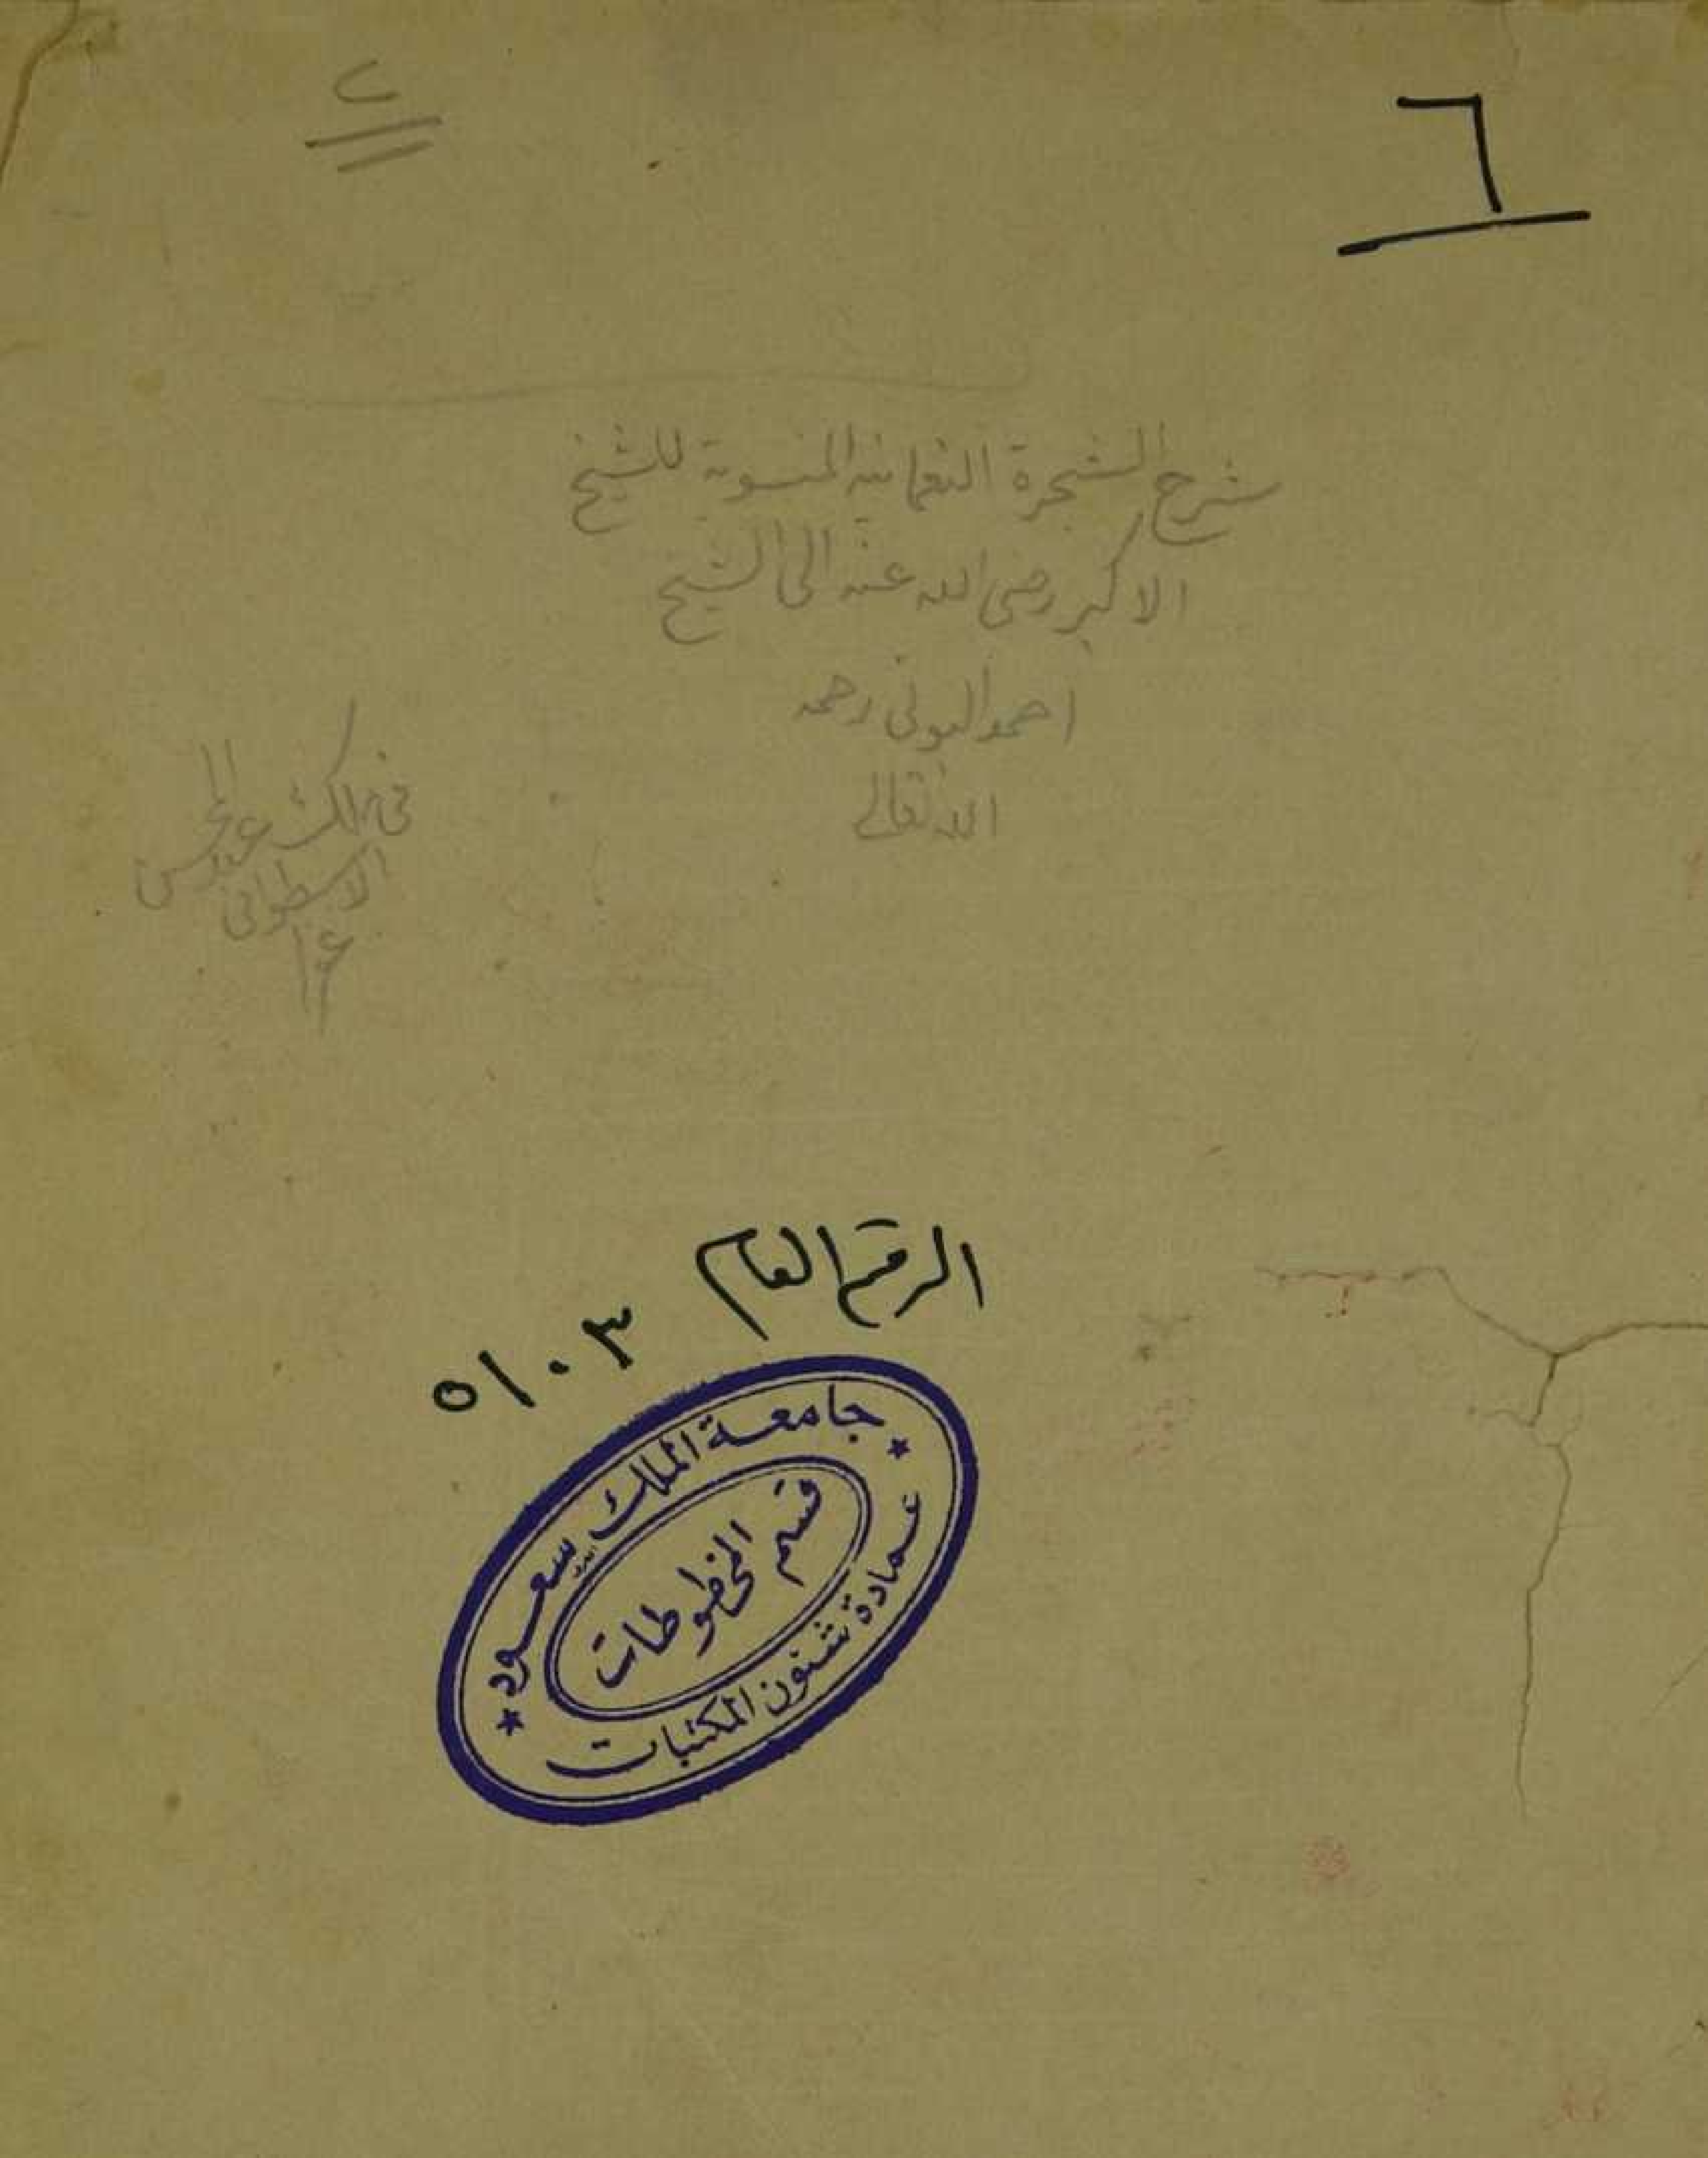 ٦
شرح الشجرة النعمانيه المنسوبة للشيخ
الاكبر رضي الله عنه الى الشيخ
احمد البوني رحمه
الله تعالى
عبد المحسن
الاسطواني
الرقم العام
٥١٠٣
جامعة الملك سعود
قسم المخطوطات
عمادة شئون المكتبات